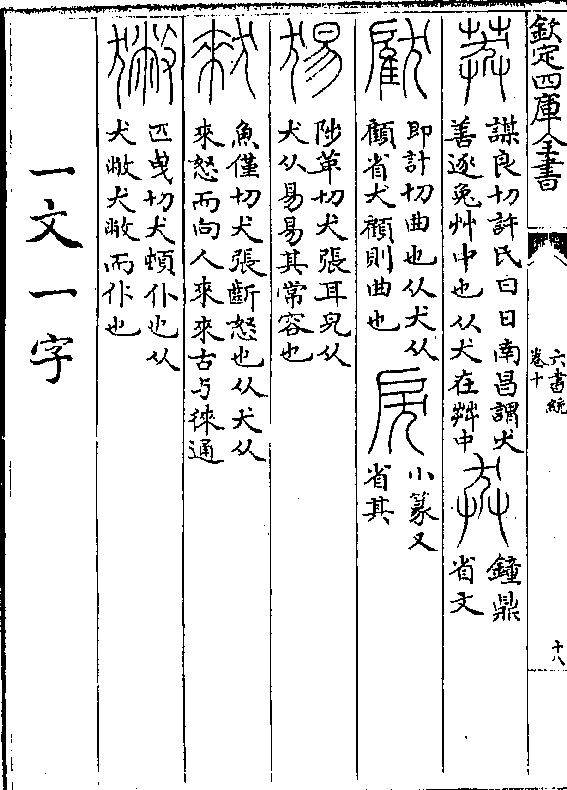 欽定四庫全書
六書統
卷十
十八
謀良切許氏曰日南昌謂犬
善逐兔艸中也从犬在茻中
鐘鼎
省文
即計切曲也从犬从
顧省犬顧則曲也
小篆又
省其
陟革切犬張耳皃从
犬从易易其常容也
魚僅切犬張齗怒也从犬从
來怒而向人來來古与徠通
匹曳切犬頓仆也从
犬敝犬敝而仆也
一文一字